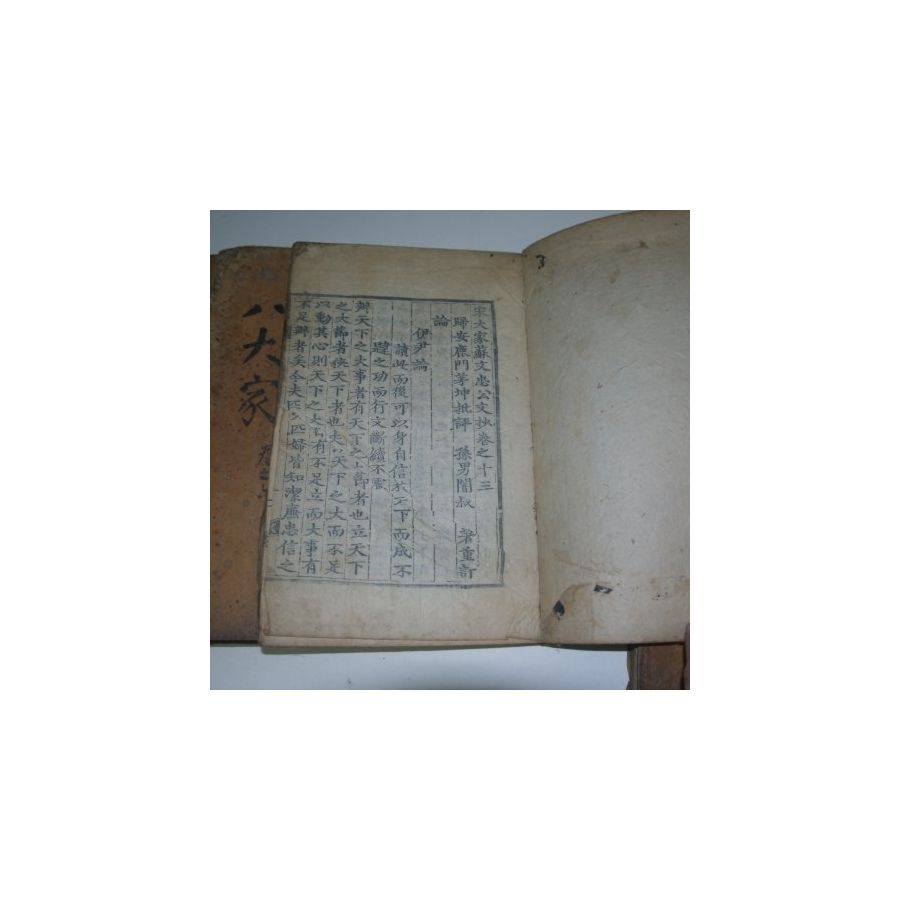 宋大家蘇文忠公文抄卷之十三
歸安鹿門茅坤批評 孫男闇叔 著重訂
論
伊尹論
讀此而後可以身自信於天下而成不
韙之功而行文斷續不羈
辦天下之大事者有天下之大節者也立天下
之大節者狹天下者也夫以天下之大而不足
以動其心則天下之大節有不足立而大事有
不足辦者矣今夫匹夫匹婦皆知潔廉忠信之
八大家